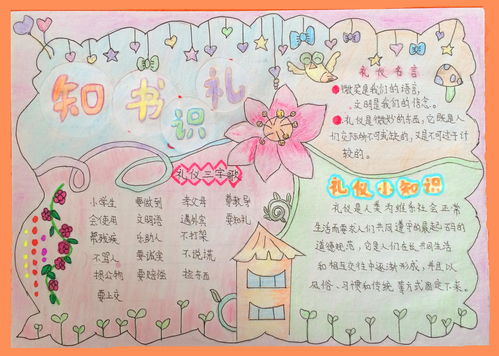 知书识礼
礼仪名言
微笑是我们的语言,
文明是我们的信念。
礼仪是微妙的东西,它既是人
们交际所不可或缺的,又是不可过于计
较的。
礼仪三字歌
小学生 要做到 孝父母 尊教导
会使用 文明语 遇外宾 要知礼
帮残疾 乐助人 不打架
不骂人 要诚实 不说谎
损公物 要赔偿 捡东西
要上交
礼仪小知识
礼仪是人类为维系社会正常
生活而要求人们共同遵守的最起码的
道德规范,它是人们在长期共同生活
和相互交往中逐渐形成,并且以
风俗、习惯和传统等方式固定下来。